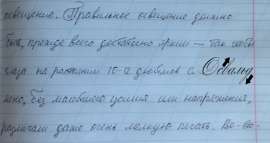 освещение. Правильное освещение должно
быть, прежде всего достаточно ярким — так чтобы
глаза на расстоянии 10-12 дюймов с.
без малейшего усилия или напряжения,
различали даже очень мелкую печать. Во-вто-